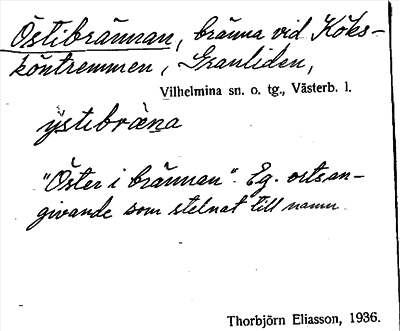 Östibrännan, bränna vid Köks-
köntremmen, Granliden,
Vilhelmina sn. o. tg., Västerb. l.
ỹstebræ̀na
"Öster i brännan". Eg. ortsan-
givande som stelnat till namn.
Thorbjörn Eliasson, 1936.